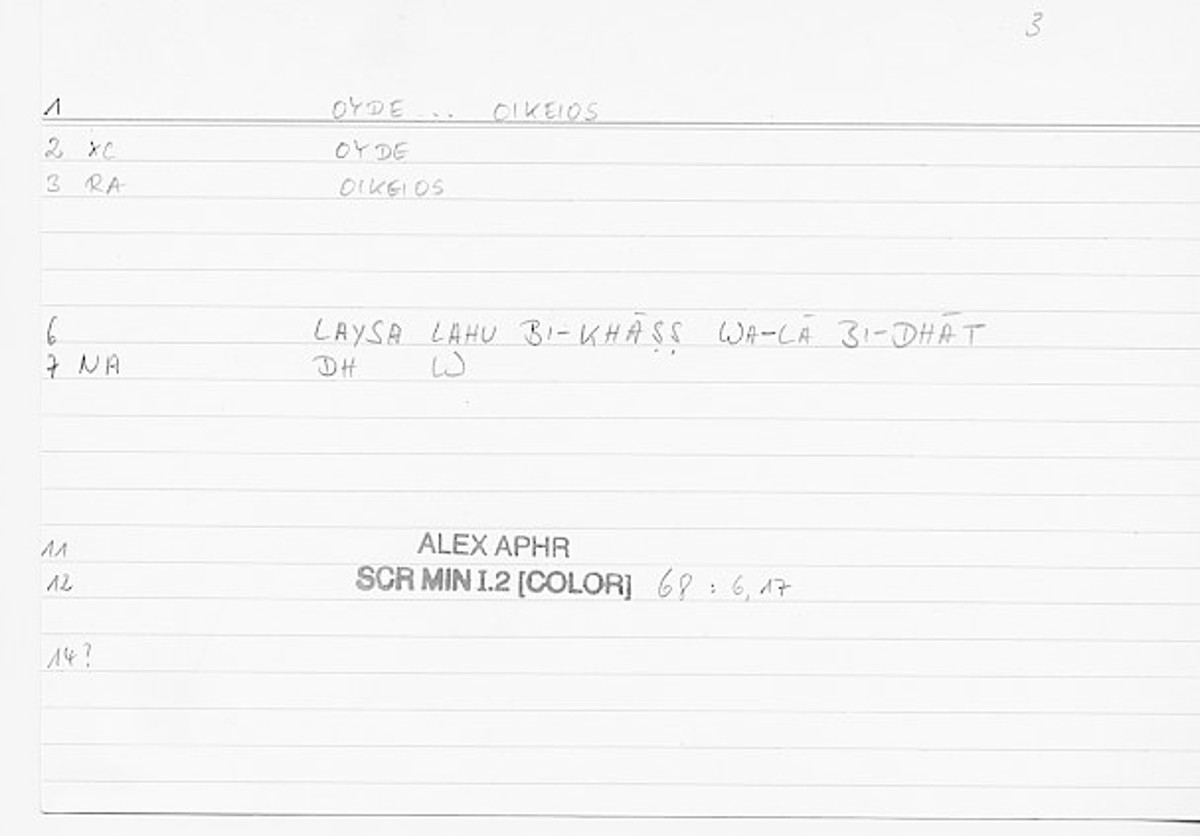 3
1 OYDE ... OIKEIOS
2 XC OYDE
3 RA OIKEIOS
6 LAYSA LAHU BI-KHĀṢṢ WA-LĀ BI-DHĀT
7 NA DH W
11 ALEX APHR
12 SCR MIN I.2 [COLOR] 68 : 6, 17
14?